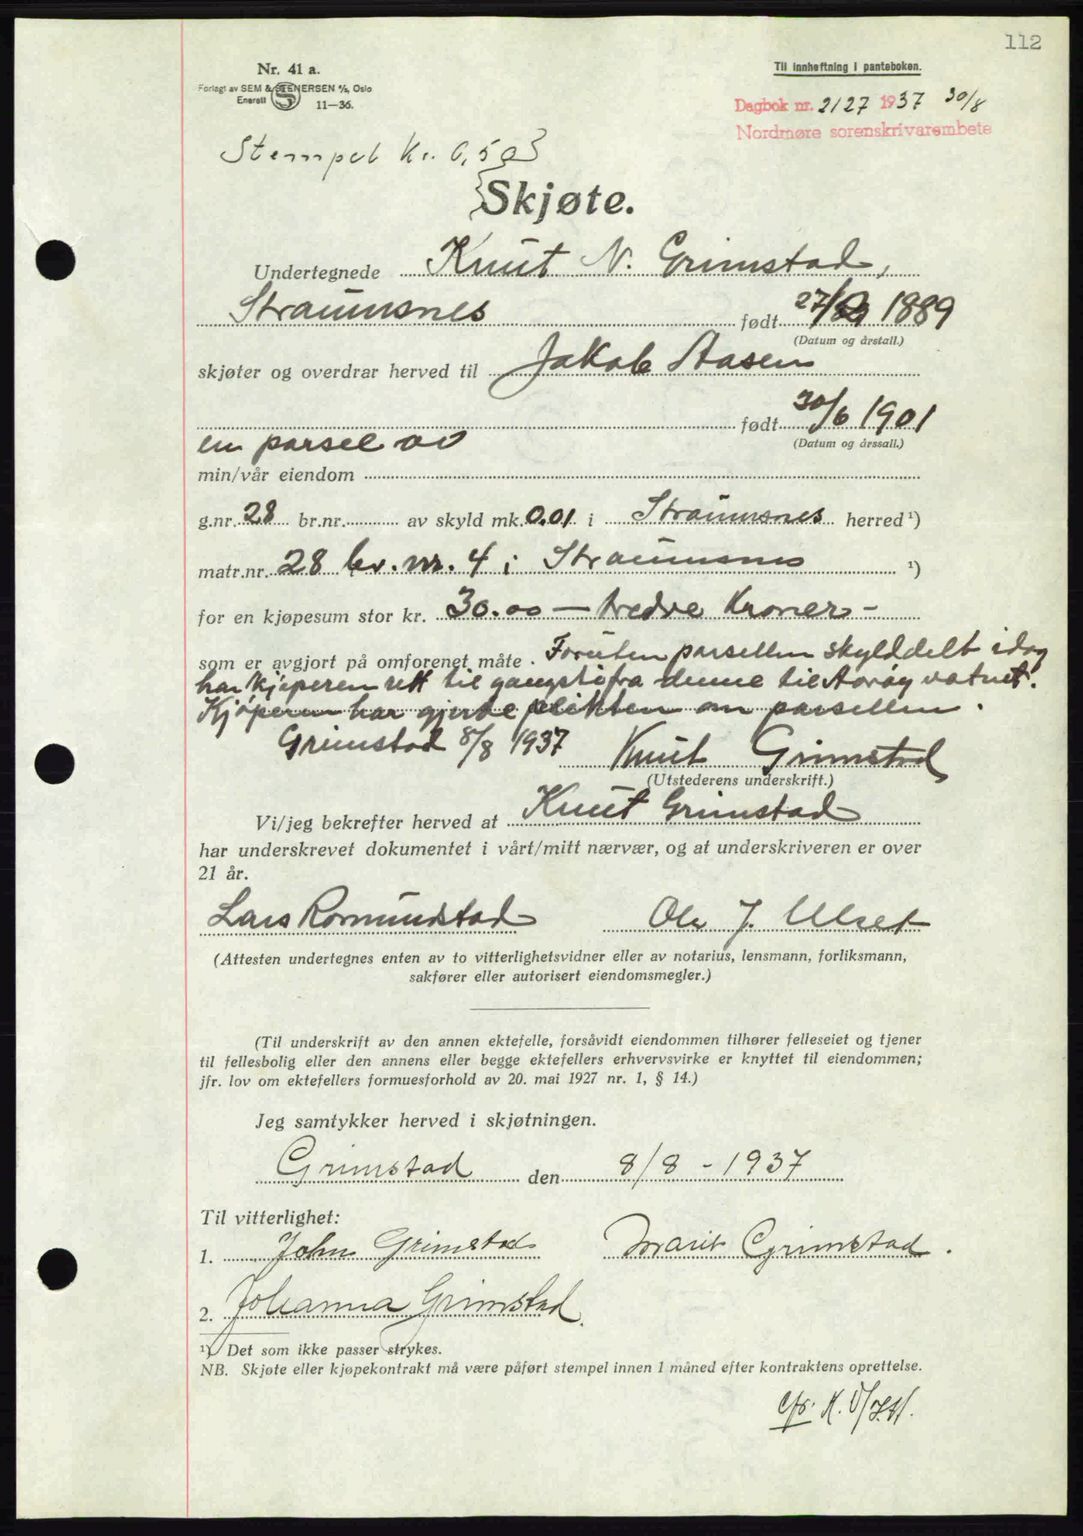 112
Nr. 41 a.
Forlagt av SEM & STENERSEN A/S, Oslo
Enerett 11-36.
Til innheftning i panteboken.
Dagbok nr. 2127 1937 30/8
Nordmøre sorenskrivarembete
Stempel kr. 0,50
Skjøte.
Undertegnede Knut N. Grimstad,
Straumsnes født 27/ 1889
(Datum og årstall.)
skjøter og overdrar herved til Jakob Aasen
født 30/6 1901
(Datum og årssall.)
en parsel av
min/vår eiendom
g.nr. 28 br.nr. av skyld mk. 0.01 i Straumsnes herred ¹)
matr.nr. 28 br. nr. 4 i Straumsnes ¹)
for en kjøpesum stor kr. 30.00 — tredve Kroner -
som er avgjort på omforenet måte. Foruten parsellen skylddelt idag
har kjøperen rett til gangsti fra denne til vatnet.
Kjøperen har gjerdeplikten om parsellen.
Grimstad 8/8 1937 Knut Grimstad
(Utstederens underskrift.)
Vi/jeg bekrefter herved at Knut Grimstad
har underskrevet dokumentet i vårt/mitt nærvær, og at underskriveren er over
21 år.
Lars Romundstad Ole J. Ulset
(Attesten undertegnes enten av to vitterlighetsvidner eller av notarius, lensmann, forliksmann,
sakfører eller autorisert eiendomsmegler.)
(Til underskrift av den annen ektefelle, forsåvidt eiendommen tilhører felleseiet og tjener
til fellesbolig eller den annens eller begge ektefellers erhvervsvirke er knyttet til eiendommen;
jfr. lov om ektefellers formuesforhold av 20. mai 1927 nr. 1, § 14.)
Jeg samtykker herved i skjøtningen.
Grimstad den 8/8 - 1937
Til vitterlighet:
1. John Grimstad Marit Grimstad.
2. Johanna Grimstad.
¹) Det som ikke passer strykes.
NB. Skjøte eller kjøpekontrakt må være påført stempel innen 1 måned efter kontraktens oprettelse.